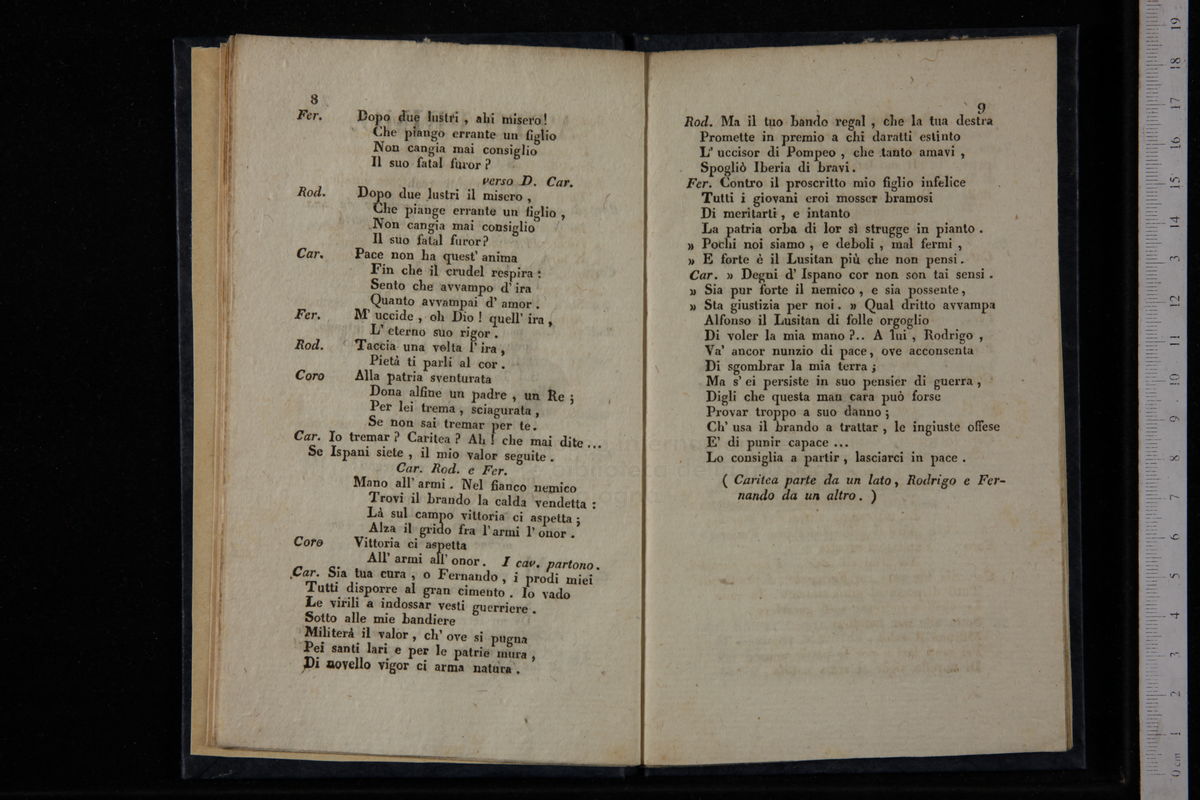 8
Fer. Dopo due lustri , ahi misero!
Che piango errante un figlio
Non cangia mai consiglio
Il suo fatal furor ?
verso D. Car.
Rod. Dopo due lustri il misero ,
Che piange errante un figlio ,
Non cangia mai consiglio
Il suo fatal furor?
Car. Pace non ha quest' anima
Fin che il crudel respira :
Sento che avvampo d' ira
Quanto avvampai d' amor .
Fer. M' uccide , oh Dio ! quell' ira ,
L' eterno suo rigor .
Rod. Taccia una volta l' ira ,
Pietà ti parli al cor .
Coro Alla patria sventurata
Dona alfine un padre , un Re ;
Per lei trema , sciagurata ,
Se non sai tremar per te .
Car. Io tremar ? Caritea ? Ah ! che mai dite ...
Se Ispani siete , il mio valor seguite .
Car. Rod. e Fer.
Mano all' armi . Nel fianco nemico
Trovi il brando la calda vendetta :
Là sul campo vittoria ci aspetta ;
Alza il grido fra l' armi l' onor .
Coro Vittoria ci aspetta
All' armi all' onor . I cav. partono .
Car. Sia tua cura , o Fernando , i prodi miei
Tutti disporre al gran cimento . Io vado
Le virili a indossar vesti guerriere .
Sotto alle mie bandiere
Militerà il valor , ch' ove si pugna
Pei santi lari e per le patrie mura ,
Di novello vigor ci arma natura .
9
Rod. Ma il tuo bando regal , che la tua destra
Promette in premio a chi daratti estinto
L' uccisor di Pompeo , che tanto amavi ,
Spogliò Iberia di bravi .
Fer. Contro il proscritto mio figlio infelice
Tutti i giovani eroi mosser bramosi
Di meritarti , e intanto
La patria orba di lor sì strugge in pianto .
» Pochi noi siamo , e deboli , mal fermi ,
» E forte è il Lusitan più che non pensi .
Car. » Degni d' Ispano cor non son tai sensi .
» Sia pur forte il nemico , e sia possente ,
» Sta giustizia per noi . » Qual dritto avvampa
Alfonso il Lusitan di folle orgoglio
Di voler la mia mano ?.. A lui , Rodrigo ,
Va' ancor nunzio di pace , ove acconsenta
Di sgombrar la mia terra ;
Ma s' ei persiste in suo pensier di guerra ,
Digli che questa man cara può forse
Provar troppo a suo danno ;
Ch' usa il brando a trattar , le ingiuste offese
E' di punir capace ...
Lo consiglia a partir , lasciarci in pace .
( Caritea parte da un lato , Rodrigo e Fer-
nando da un altro . )
0 cm 1 2 3 4 5 6 7 8 9 10 11 12 13 14 15 16 17 18 19